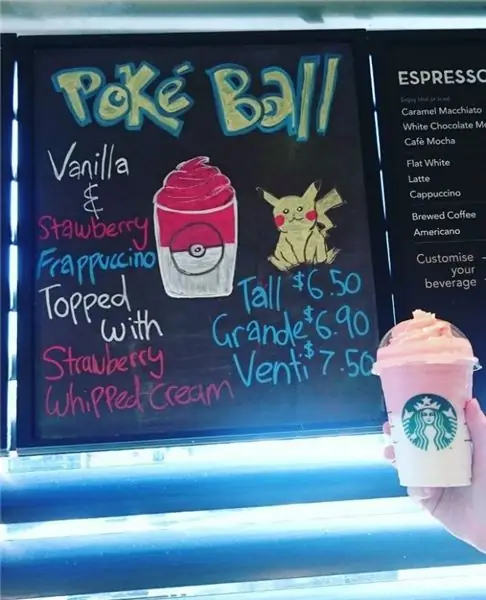 Poké Ball
Vanilla
&
Stawberry
Frappuccino
Topped
with
Strawberry
Whipped Cream
Tall $6.50
Grande $6.90
Venti $7.50
ESPRESSO
Caramel Macchiato
White Chocolate M
Cafè Mocha
Flat White
Latte
Cappuccino
Brewed Coffee
Americano
Customise
your
beverage